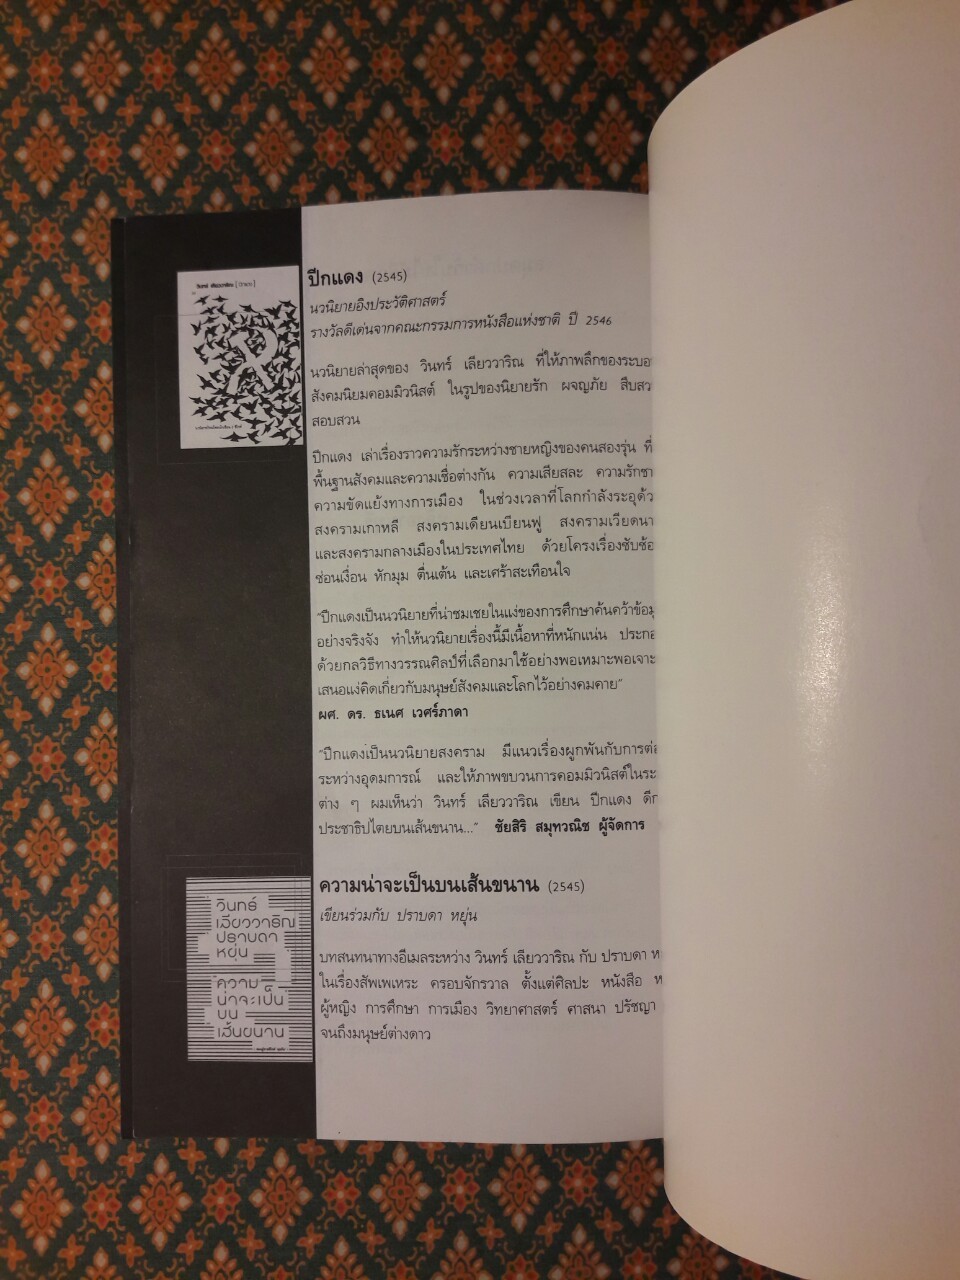 ปีกแดง (2545)
นวนิยายอิงประวัติศาสตร์
รางวัลดีเด่นจากคณะกรรมการหนังสือแห่งชาติ ปี 2546
นวนิยายล่าสุดของ วินทร์ เลียววาริณ ที่ให้ภาพลึกของระบอ
สังคมนิยมคอมมิวนิสต์ ในรูปของนิยายรัก ผจญภัย สืบสว
สอบสวน
ปีกแดง เล่าเรื่องราวความรักระหว่างชายหญิงของคนสองรุ่น ที่
พื้นฐานสังคมและความเชื่อต่างกัน ความเสียสละ ความรักชา
ความขัดแย้งทางการเมือง ในช่วงเวลาที่โลกกำลังระอุด้ว
สงครามเกาหลี สงครามเดียนเบียนฟู สงครามเวียดนา
และสงครามกลางเมืองในประเทศไทย ด้วยโครงเรื่องซับซ้อ
ซ่อนเงื่อน หักมุม ตื่นเต้น และเศร้าสะเทือนใจ
"ปีกแดงเป็นนวนิยายที่น่าชมเชยในแง่ของการศึกษาค้นคว้าข้อมู
อย่างจริงจัง ทำให้นวนิยายเรื่องนี้มีเนื้อหาที่หนักแน่น ประกอ
ด้วยกลวิธีทางวรรณศิลป์ที่เลือกมาใช้อย่างพอเหมาะพอเจาะ
เสนอแง่คิดเกี่ยวกับมนุษย์สังคมและโลกไว้อย่างคมคาย"
ผศ. ดร. ธเนศ เวศร์ภาดา
"ปีกแดงเป็นนวนิยายสงคราม มีแนวเรื่องผูกพันกับการต่อ
ระหว่างอุดมการณ์ และให้ภาพขบวนการคอมมิวนิสต์ในระ
ต่าง ๆ ผมเห็นว่า วินทร์ เลียววาริณ เขียน ปีกแดง ดีก
ประชาธิปไตยบนเส้นขนาน..." ชัยสิริ สมุทวณิช ผู้จัดการ
วินทร์
เลียววาริณ
ปราบดา
หยุ่น
ความ
น่าจะเป็น
บน
เส้นขนาน
ความน่าจะเป็นบนเส้นขนาน (2545)
เขียนร่วมกับ ปราบดา หยุ่น
บทสนทนาทางอีเมลระหว่าง วินทร์ เลียววาริณ กับ ปราบดา ห
ในเรื่องสัพเพเหระ ครอบจักรวาล ตั้งแต่ศิลปะ หนังสือ ห
ผู้หญิง การศึกษา การเมือง วิทยาศาสตร์ ศาสนา ปรัชญา
จนถึงมนุษย์ต่างดาว